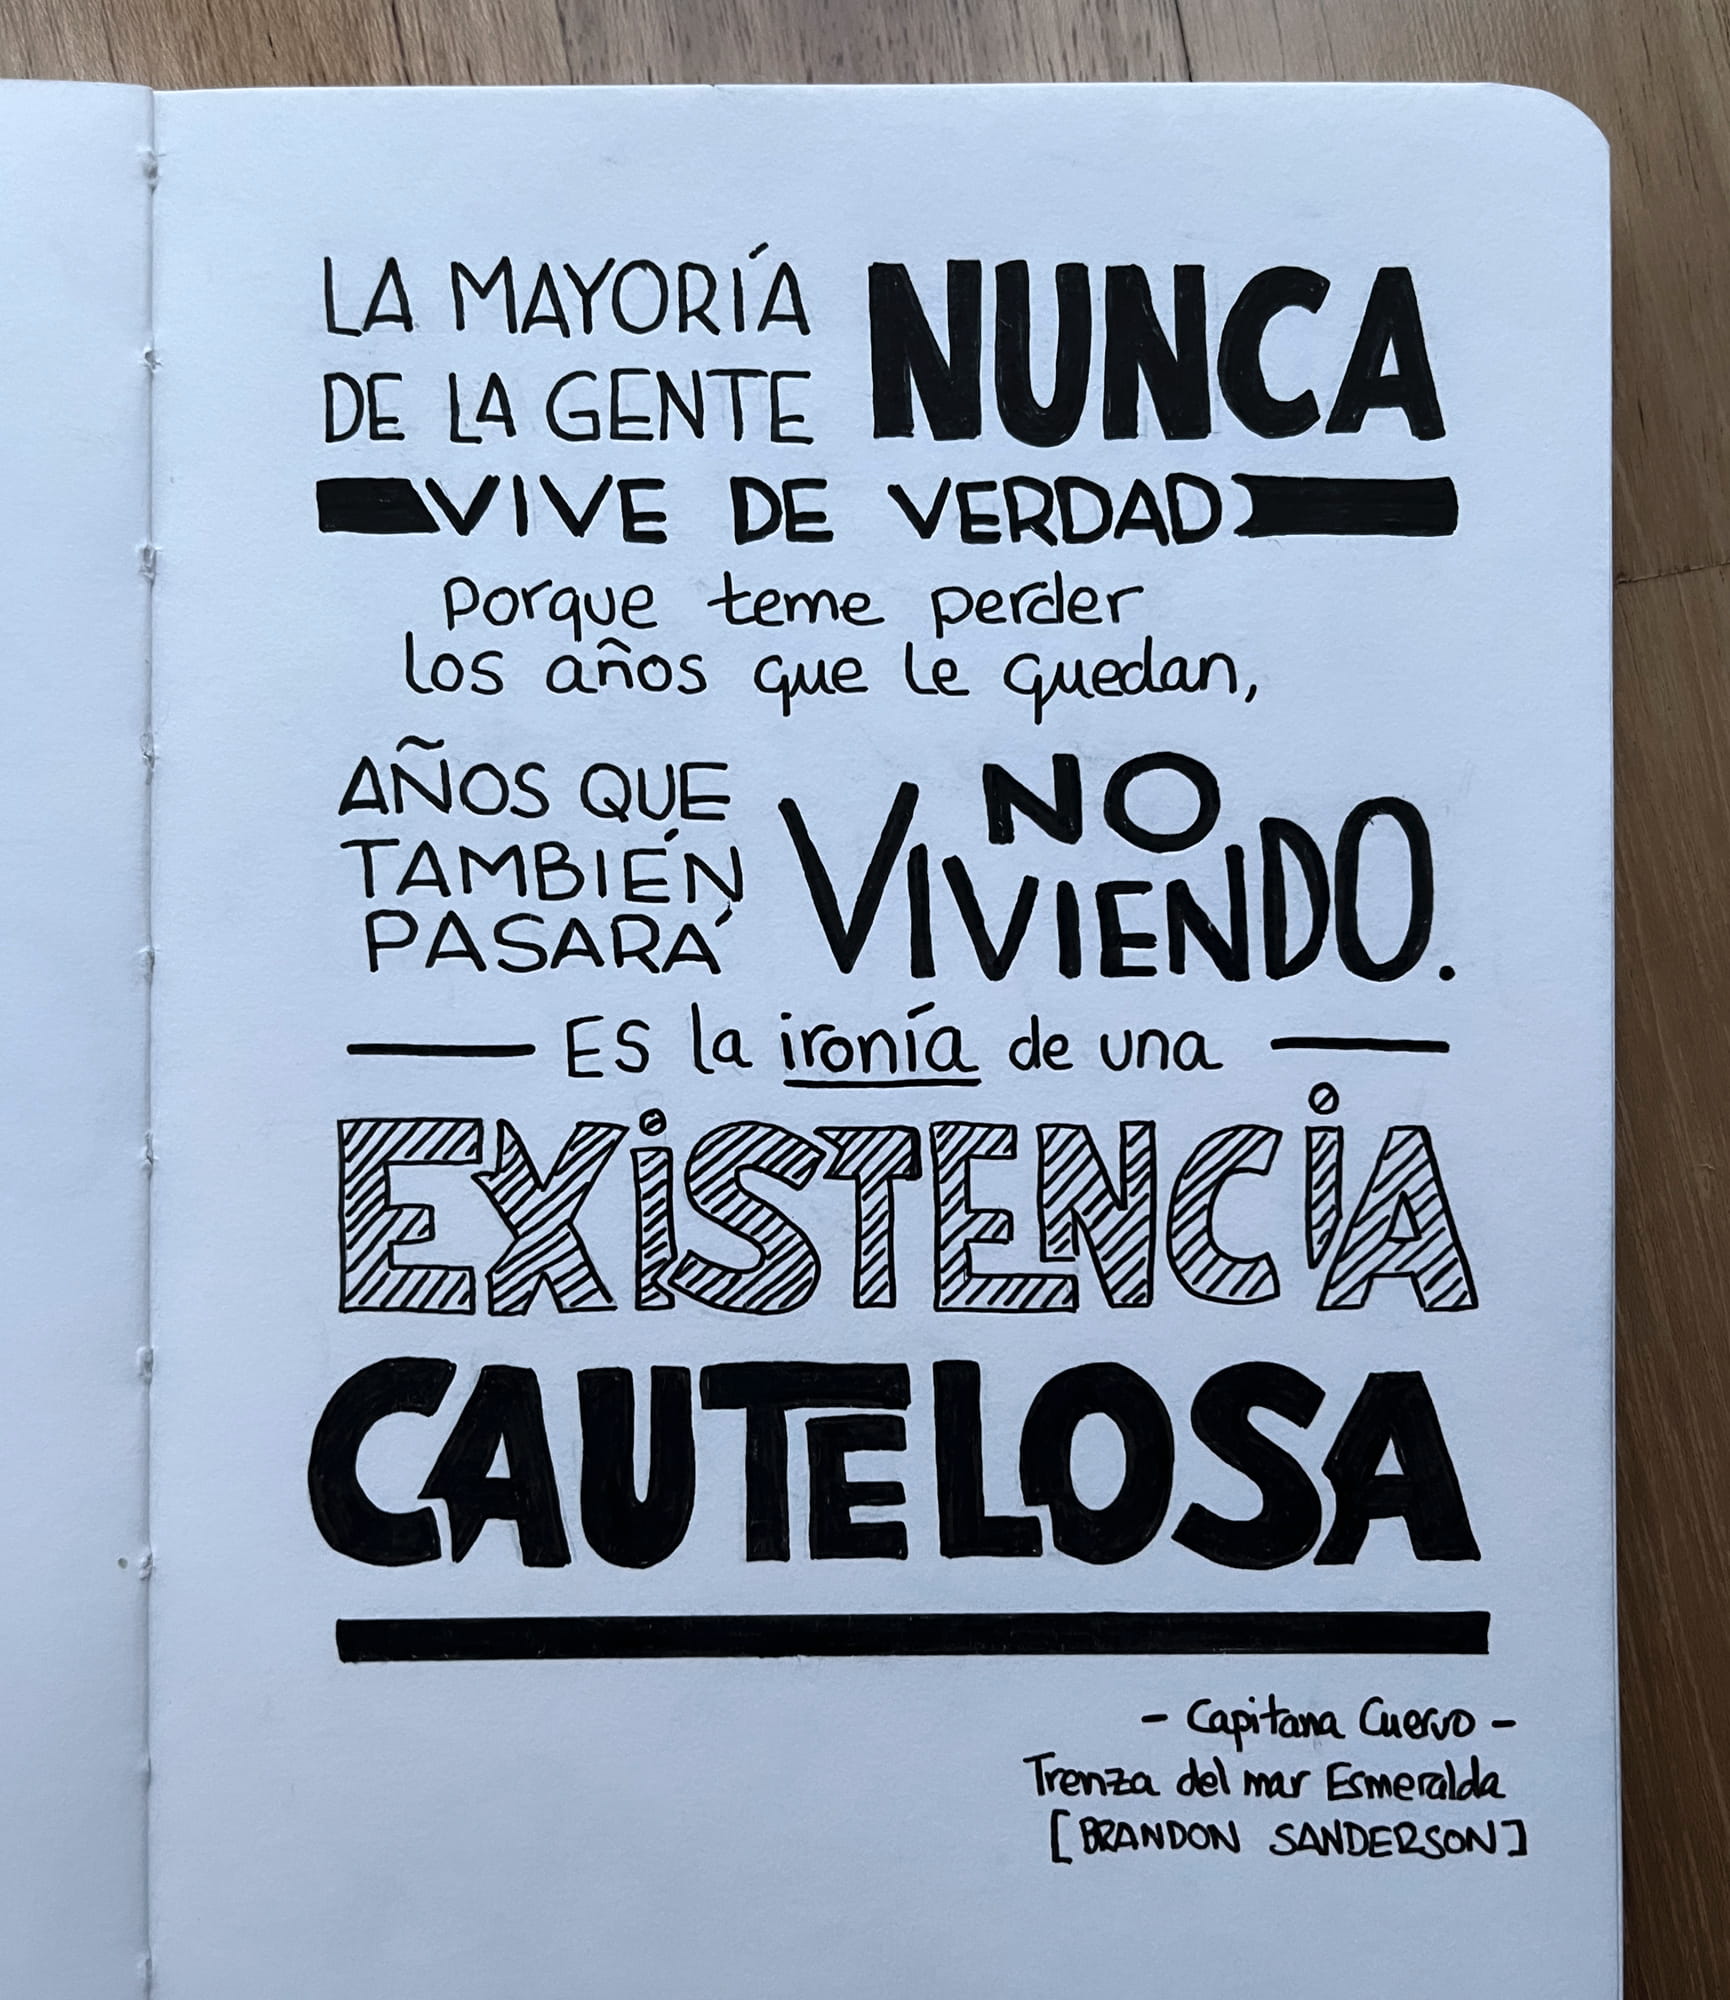 LA MAYORÍA
DE LA GENTE
NUNCA
VIVE DE VERDAD
porque teme perder
los años que le quedan,
AÑOS QUE
TAMBIÉN
PASARÁ
NO
VIVIENDO.
ES la ironía de una
EXiSTENCiA
CAUTELOSA
- Capitana Cuervo -
Trenza del mar Esmeralda
[BRANDON SANDERSON]